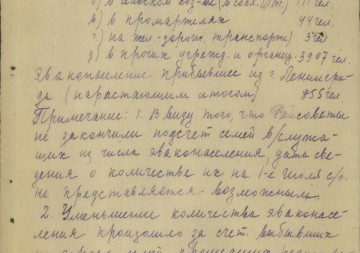 в) в промартелях 44 чел.
г) на жел-дорож. транспорте) 3 чел
д) в проч. учрежд. и организ. 3907 чел.
Эваконаселение прибывшее из г. Ленингра-
да (нарастающим итогом) 855 чел.
Примечание: 1. В виду того, что Райсоветы
не закончили подсчет семей в/служа-
щих из числа эваконаселения, дать све-
дения о количестве их на 1-е число с/г.
не представляется возможным.
2. Уменьшение количества эваконасе-
ления произошло за счет выбывших